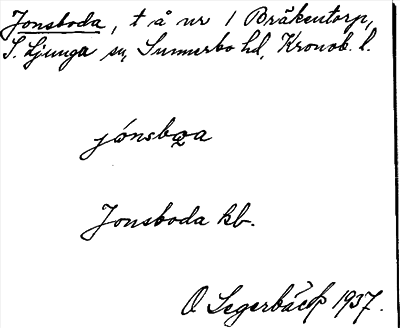 Jonsboda, t å nr 1 Bråkentorp,
S. Ljunga sn, Sunnerbo hd, Kronob. l.
jónsbǫa
Jonsboda kb.
O Segerbäck 1937.